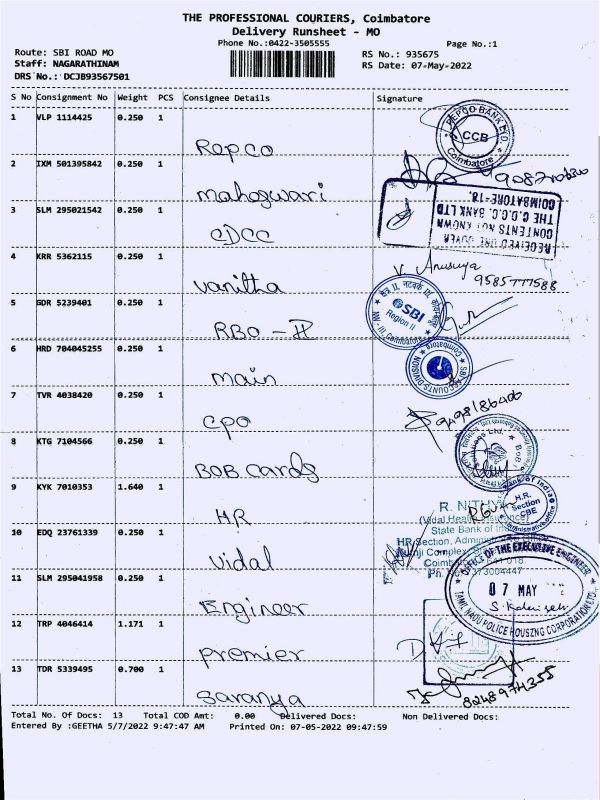 THE PROFESSIONAL COURIERS, Coimbatore
Delivery Runsheet - MO
Phone No.:0422-3505555
Page No.:1
Route: SBI ROAD MO
RS No.: 935675
Staff: NAGARATHINAM
RS Date: 07-May-2022
DRS No.: DCJB93567501
S No Consignment No Weight PCS Consignee Details Signature
1 VLP 1114425 0.250 1
Repco
REPCO BANK LTD.
CCB
Coimbatore
2 IXM 501395842 0.250 1
maheswari
3 SLM 295021542 0.250 1
CDCC
RECEIVED ONE COVER
CONTENTS NOT KNOWN
THE C.D.C.C. BANK LTD
COIMBATORE-18.
4 KRR 5362115 0.250 1
vanitha
V. Anusuya
9585777588
5 GDR 5239401 0.250 1
RBO - II
SBI
Region II
6 HRD 704045255 0.250 1
main
7 TVR 4038420 0.250 1
CPO
8 KTG 7104566 0.250 1
BOB Cards
9 KYK 7010353 1.640 1
HR
Bank of India
H.R.
Section
CBE
Administrative Office
10 EDQ 23761339 0.250 1
vidal
R. NITHY
State Bank of
HR Section,
Ph.
11 SLM 295041958 0.250 1
Engineer
OFFICE OF THE EXECUTIVE ENGINEER
07 MAY
TAMIL NADU POLICE HOUSING CORPORATION LTD.,
12 TRP 4046614 1.171 1
premier
13 TDR 5339495 0.700 1
saranya
8248974355
Total No. Of Docs: 13 Total COD Amt: 0.00 Delivered Docs: Non Delivered Docs:
Entered By :GEETHA 5/7/2022 9:47:47 AM Printed On: 07-05-2022 09:47:59